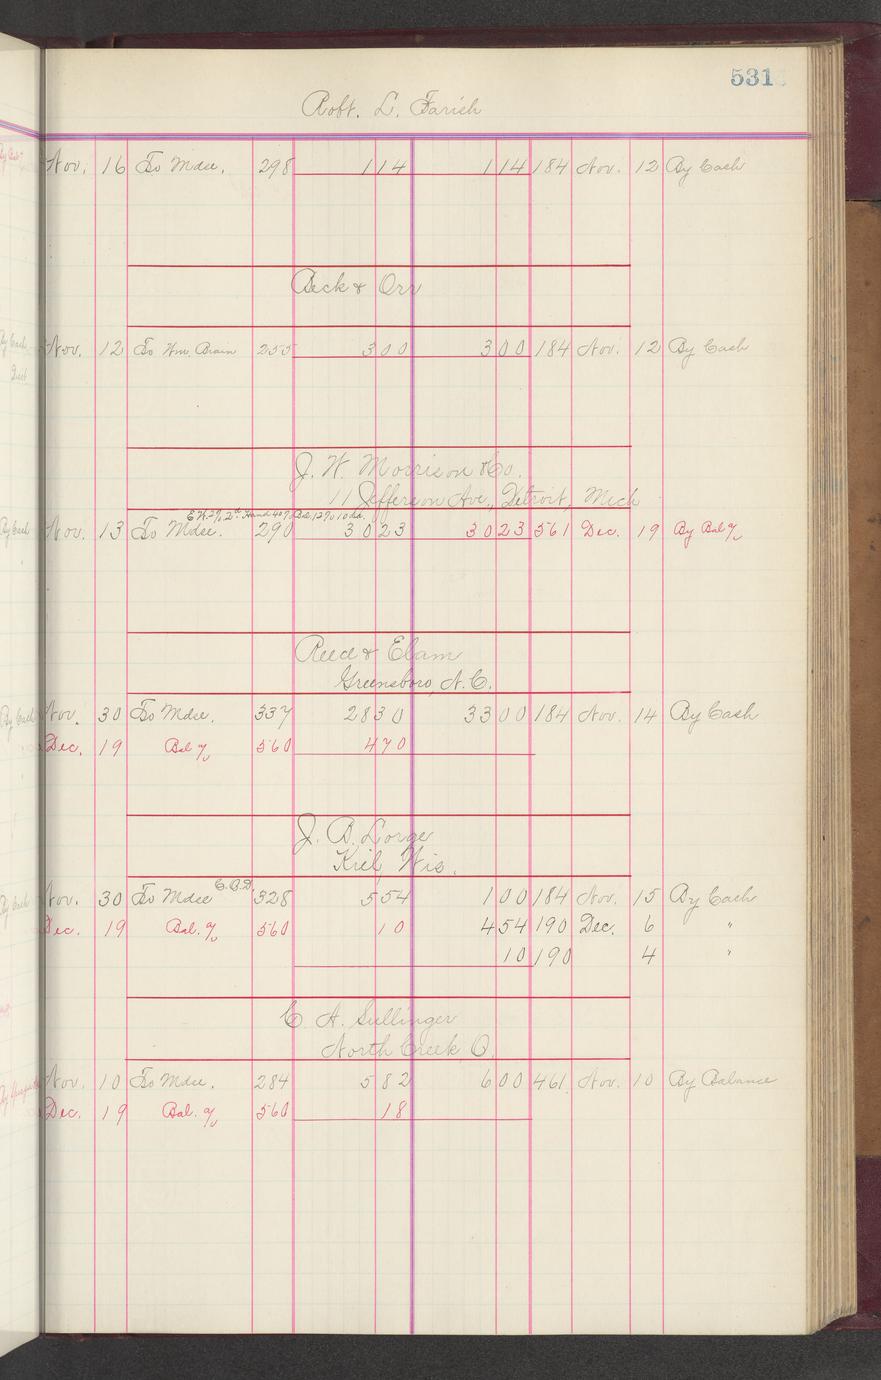 531
Robt. L. Farish
Nov. 16 To Mdse. 298 114 114 184 Nov. 12 By Cash
Beck & Orr
Nov. 12 To Wm. Brain 255 300 300 184 Nov. 12 By Cash
J. W. Morrison & Co.
11 Jefferson Ave., Detroit, Mich
Nov. 13 To Mdse. 290 3023 3023 561 Dec. 19 By Bal %
Reed & Elam
Greensboro, N.C.
Nov. 30 To Mdse. 337 2830 3300 184 Nov. 14 By Cash
Dec. 19 Bal % 560 470
J. B. Lorge
Kiel, Wis.
C.O.D.
Nov. 30 To Mdse 328 554 100 184 Nov. 15 By Cash
Dec. 19 Bal. % 560 10 454 190 Dec. 6 "
10 190 4 "
C. A. Sullinger
North Creek O.
Nov. 10 To Mdse. 284 582 600 461 Nov. 10 By Balance
Dec. 19 Bal. % 560 18